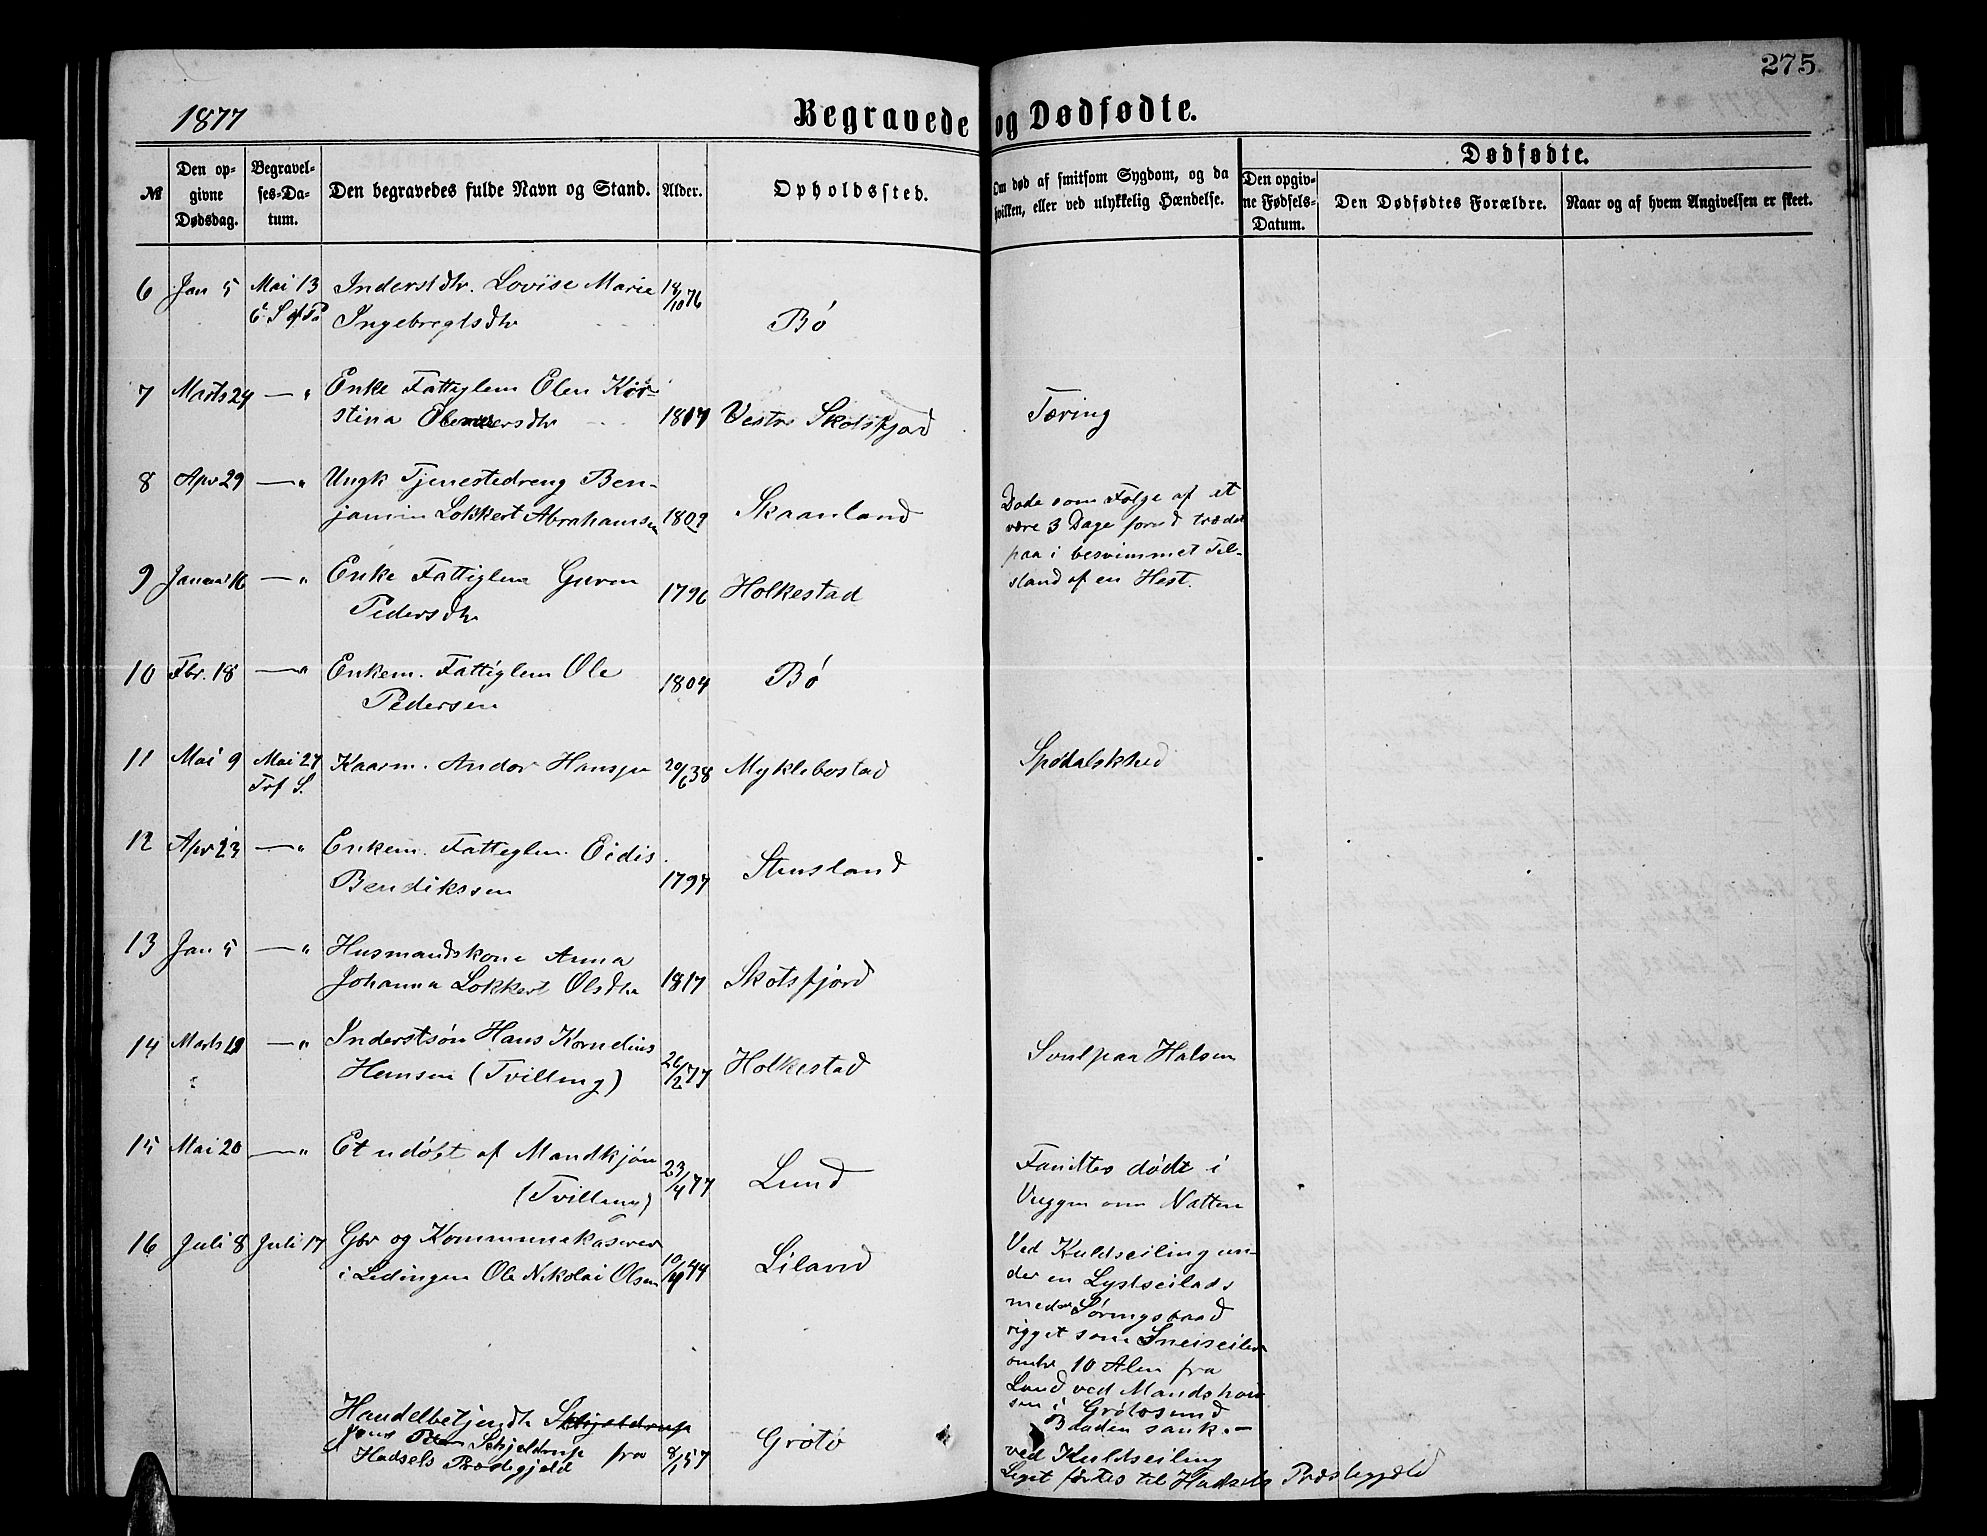 275
1877
Begravede og Dødfødte.
№
Den opgivne Dødsdag.
Begravelses-Datum.
Den begravedes fulde Navn og Stand.
Alder.
Opholdssted.
Om død af smitsom Sygdom, og da hvilken, eller ved ulykkelig Hændelse.
Dødfødte.
Den opgivne Fødsels-Datum.
Den Dødfødtes Forældre.
Naar og af hvem Angivelsen er skeet.
6 Jan 5 Mai 13 Inderstdtr. Lovise Marie 18/10 76
6 S ef P Ingebregtsdtr Bö
7 Marts 24 — " Enke Fattiglem Elen Kir-
stina Ebenersdtr 1807 Vestre Skotsfjord Tæring
8 Apr 29 — " Ungk Tjenestedreng Ben-
jamin Lokkert Abrahamsen 1809 Skaanland Døde som Følge af et
være 3 Dage forud traadt
paa i besvimmet Til-
stand af en Hest.
9 Januar 16 — " Enke Fattiglem Guren
Pedersdtr 1796 Holkestad
10 Fbr. 18 — " Enkem. Fattiglem Ole
Pedersen 1804 Bö
11 Mai 9 Mai 27 Kaarm. Andor Hansen 20/6 38 Myklebostad Spødalskhed
Trf S.
12 Apr 23 — " Enkem. Fattiglem Eidis
Bendikssen 1797 Stensland
13 Jan 5 — " Husmandskone Anna
Johanna Lokkert Olsdtr 1817 Skotsfjord
14 Marts 19 — " Inderstsön Hans Kornelius
Hansen (Tvilling) 26/2 77 Holkestad Svul paa Halsen
15 Mai 20 — " Et udöbt af Mandkjön
(Tvilling) 23/4 77 Lund Fandtes dödt i
Vuggen om Natten
16 Juli 8 Juli 17 Gbr og Kommunekasserer
i Lödingen Ole Nikolai Olsen 10/4 44 Liland Ved Kuldseiling un-
der en Lystseilads
med Söringsbaad
rigget som Sneiseiler
omtr 10 Alen fra
Land ved Mandshau-
sen i Grötösund
Baaden sank. —
Handelbetjendt Skjeldrup
Jens Peter Schjeldrup fra
Hadsels Præstegjeld 8/1 57 Grötö ved Kuldseiling
Liget førtes til Hadsels Præstegjeld